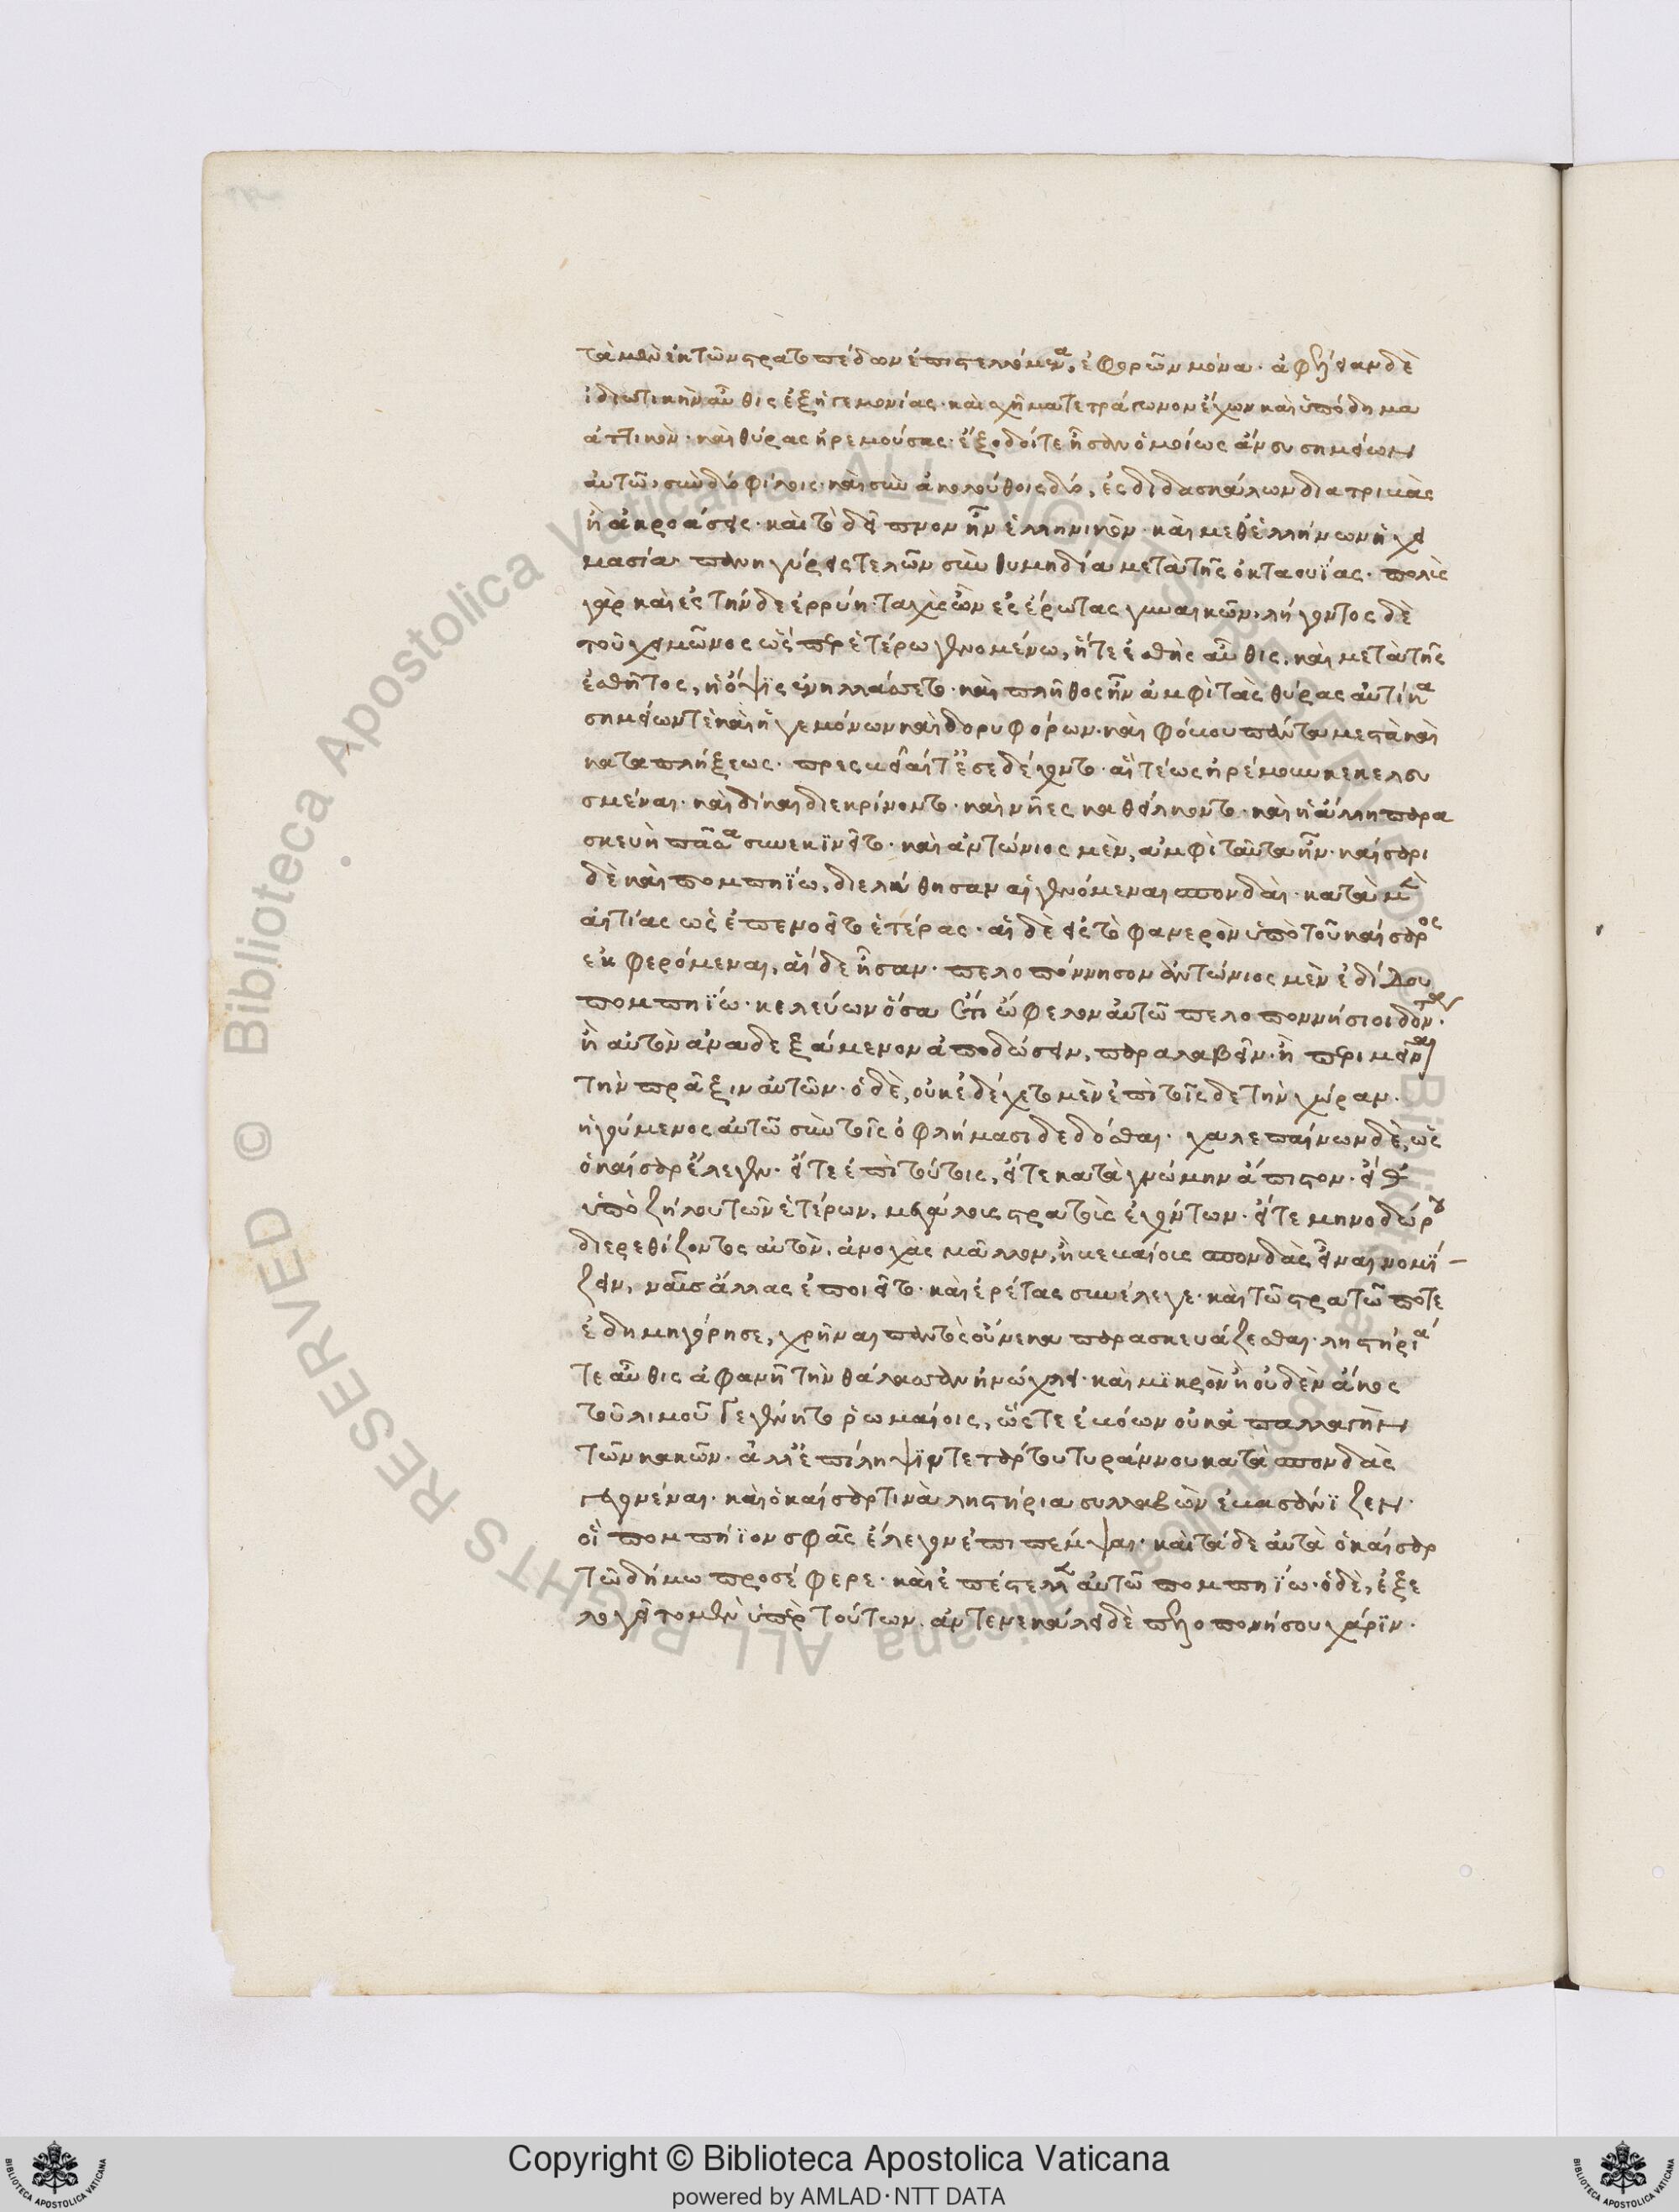 τὰ μὲν ἐκ τῶν στρατοπέδων ἐπιστελλόμενα, ἐφορῶν μόνα· ἀφέλειαν δὲ
ἰδιωτικὴν αὖθις ἐξ ἡγεμονίας· καὶ σχῆμα τετράγωνον ἔχων καὶ ὑπόδημα
ἀττικὸν· καὶ θύρας ἠρεμούσας· ἔξοδοί τε ἦσαν ὁμοίως ἄνευ σημείων
αὐτῶ, σὺν δύο φίλοις· καὶ σὺν ἀκολούθοις δύο, ἐς διδασκάλων διατριβὰς
ἢ ἀκροάσεις· καὶ τὸ δεῖπνον ἦν ἑλληνικὸν· καὶ μεθ' ἑλλήνων ἡ γυ
μνασία· πανηγύρεις τε
γὰρ καὶ ἐς τήνδε ἐρρύη· ταχὺς ὢν ἐς ἔρωτας γυναικῶν· λήγοντος δὲ
τοῦ χειμῶνος ὥσπερ ἑτέρω γενομένω, ἥ τε ἐσθὴς αὖθις, καὶ μετὰ τῆς
ἐσθῆτος, ἡ ὄψϊς ἐνηλλάσσετο· καὶ πλῆθος ἦν ἀμφὶ τὰς θύρας αὐτίκα
σημείων τὲ καὶ ἡγεμόνων καὶ δορυφόρων· καὶ φόβου πάντα μεστὰ καὶ
καταπλήξεως· πρεσβεῖαί τ' ἐσεδέχοντο· αἳ τέως ἠρέμουν κεκελευ
σμέναι· καὶ δίκαι διεκρίνοντο· καὶ νῆες καθείλκοντο· καὶ ἡ ἄλλη παρα
σκευὴ πᾶσα συνεκϊνεῖτο· καὶ ἀντώνιος μὲν, ἀμφὶ ταῦτα ἦν· καίσαρι
δὲ καὶ πομπηΐω, διελύθησαν αἱ γενόμεναι σπονδαὶ· κατὰ μὲν
αἰτίας ὡς ἐπενοεῖτο ἑτέρας· αἱ δὲ εἰς τὸ φανερὸν ὑπὸ τοῦ καίσαρος
ἐκφερόμεναι, αἵδε ἦσαν· πελοπόννησον ἀντώνιος μὲν ἐδίδου
πομπηΐω· κελεύων ὅσα ἔτι ὤφελον αὐτῶ πελοποννήσιοι δόντα
ἢ αὐτὸν ἀναδεξάμενον ἀποδώσειν, παραλαβεῖν· ἢ περιμεῖναι
τὴν πρᾶξιν αὐτῶν· ὁ δὲ, οὐκ ἐδέχετο μὲν ἐπὶ τοῖσδε τὴν χώραν·
ἡγούμενος αὐτῶ σὺν τοῖς ὀφλήμασι δεδόσθαι· χαλεπαίνων δὲ, ὡς
ὁ καίσαρ ἔλεγεν· εἴτε ἐπὶ τούτοις, εἴτε κατὰ γνώμην ἄπιστον· εἴθ'
ὑπὸ ζήλου τῶν ἑτέρων, μεγάλους στρατοὺς ἐχόντων· εἴτε μηνοδώρου
διερεθίζοντος αὐτὸν, ἀνοχὰς μᾶλλον, ἢ βεβαίους σπονδὰς εἶναι νομί-
ζειν, ναῦς ἄλλας ἐποιεῖτο· καὶ ἐρέτας συνέλεγε· καὶ τῶ στρατῶ ποτε
ἐδημηγόρησε, χρῆναι παντὸς οὕνεκα παρασκευάζεσθαι· ληστήριά
τε αὖθις ἀφανῆ τὴν θάλασσαν ἠνώχλει· καὶ μϊκρὸν ἢ οὐδὲν ἄκος
τοῦ λιμοῦ γεγένητο ῥωμαίοις, ὥστε ἐβόων οὐκ ἀπαλλαγὴν
τῶν κακῶν· ἀλλ' ἐπίληψϊν τετάρτου τυράννου κατὰ σπονδὰς
γεγονέναι· καὶ ὁ καίσαρ τινὰ ληστήρια συλλαβὼν ἐβασάνϊζεν·
οἳ πομπήϊον σφᾶς ἔλεγον ἐπιπέμψαι· καὶ τάδε αὐτὰ ὁ καίσαρ
τῶ δήμω προσέφερε· καὶ ἐπέστελλεν αὐτῶ πομπηΐω· ὁ δὲ, ἐξε
λογεῖτο μὲν ὑπὲρ τούτων. ἀντενεκάλει δὲ πελοπονήσου χάρϊν·
Copyright © Biblioteca Apostolica Vaticana
powered by AMLAD·NTT DATA